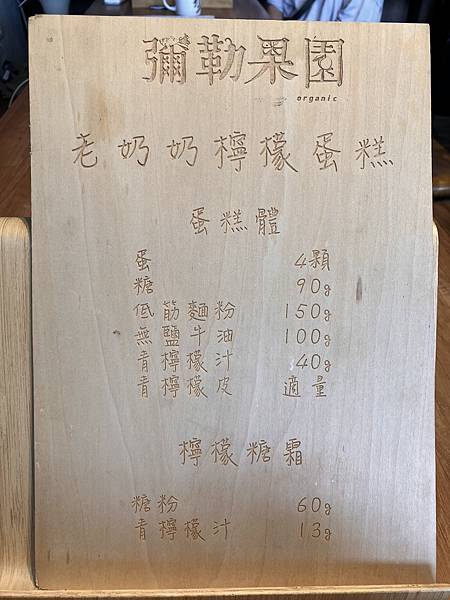 彌勒果園
organic
老奶奶檸檬蛋糕
蛋糕體
蛋 4顆
糖 90g
低筋麵粉 150g
無鹽牛油 100g
青檸檬汁 40g
青檸檬皮 適量
檸檬糖霜
糖粉 60g
青檸檬汁 13g